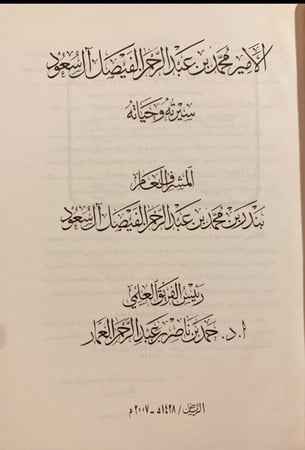 الأمير محمد بن عبد الرحمن الفيصل آل سعود
سيرته وحياته
المشرف العام
بندر بن محمد بن عبد الرحمن الفيصل آل سعود
رئيس الفريق العلمي
أ.د. حمد بن ناصر بن عبد الرحمن العمار
الرياض / ١٤٢٨هـ - ٢٠٠٧م